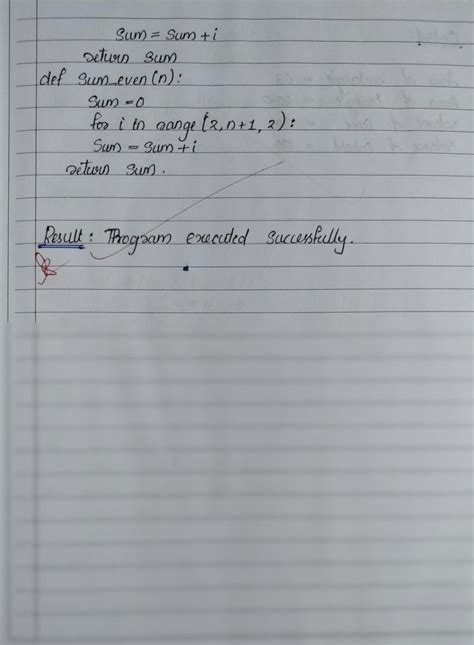 Sum = Sum + i
return Sum
def Sum_even(n):
Sum = 0
for i in range (2, n+1, 2):
Sum = Sum + i
return Sum.
Result: Program executed Successfully.